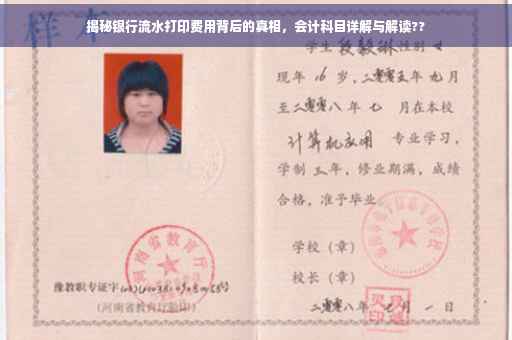 揭秘银行流水打印费用背后的真相，会计科目详解与解读??
样本
学生段毅琳性别女
现年16岁，二零零五年九月
至二零零八年七月在本校
计算机应用专业学习，
学制三年，修业期满，成绩
合格，准予毕业
学校（章）
校长（章）
二零零八年七月一日
河南省教育厅
豫教职专证字
(河南省教育厅验印)